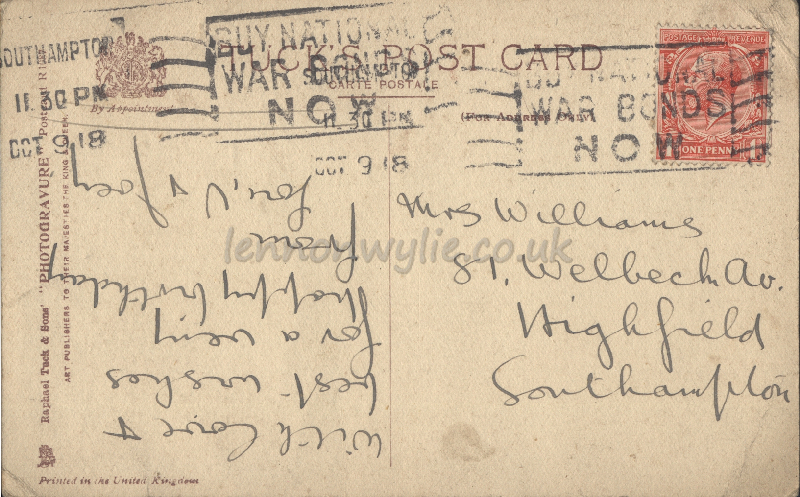 BUY NATIONAL
WAR BONDS
NOW
SOUTHAMPTON
11.30 PM
OCT 9 18
SOUTHAMPTON
11.30 PM
OCT 9 18
BUY NATIONAL
WAR BONDS
NOW
TUCK'S POST CARD
CARTE POSTALE
(For Address Only)
By Appointment
POSTAGE REVENUE
ONE PENNY
Raphael Tuck & Sons' "PHOTOGRAVURE" Postcard
ART PUBLISHERS TO THEIR MAJESTIES THE KING & QUEEN.
Printed in the United Kingdom
With love &
best wishes
for a very
happy birthday
from
Joey
Mrs Williams
87, Welbeck Av.
Highfield
Southampton
lennonwylie.co.uk